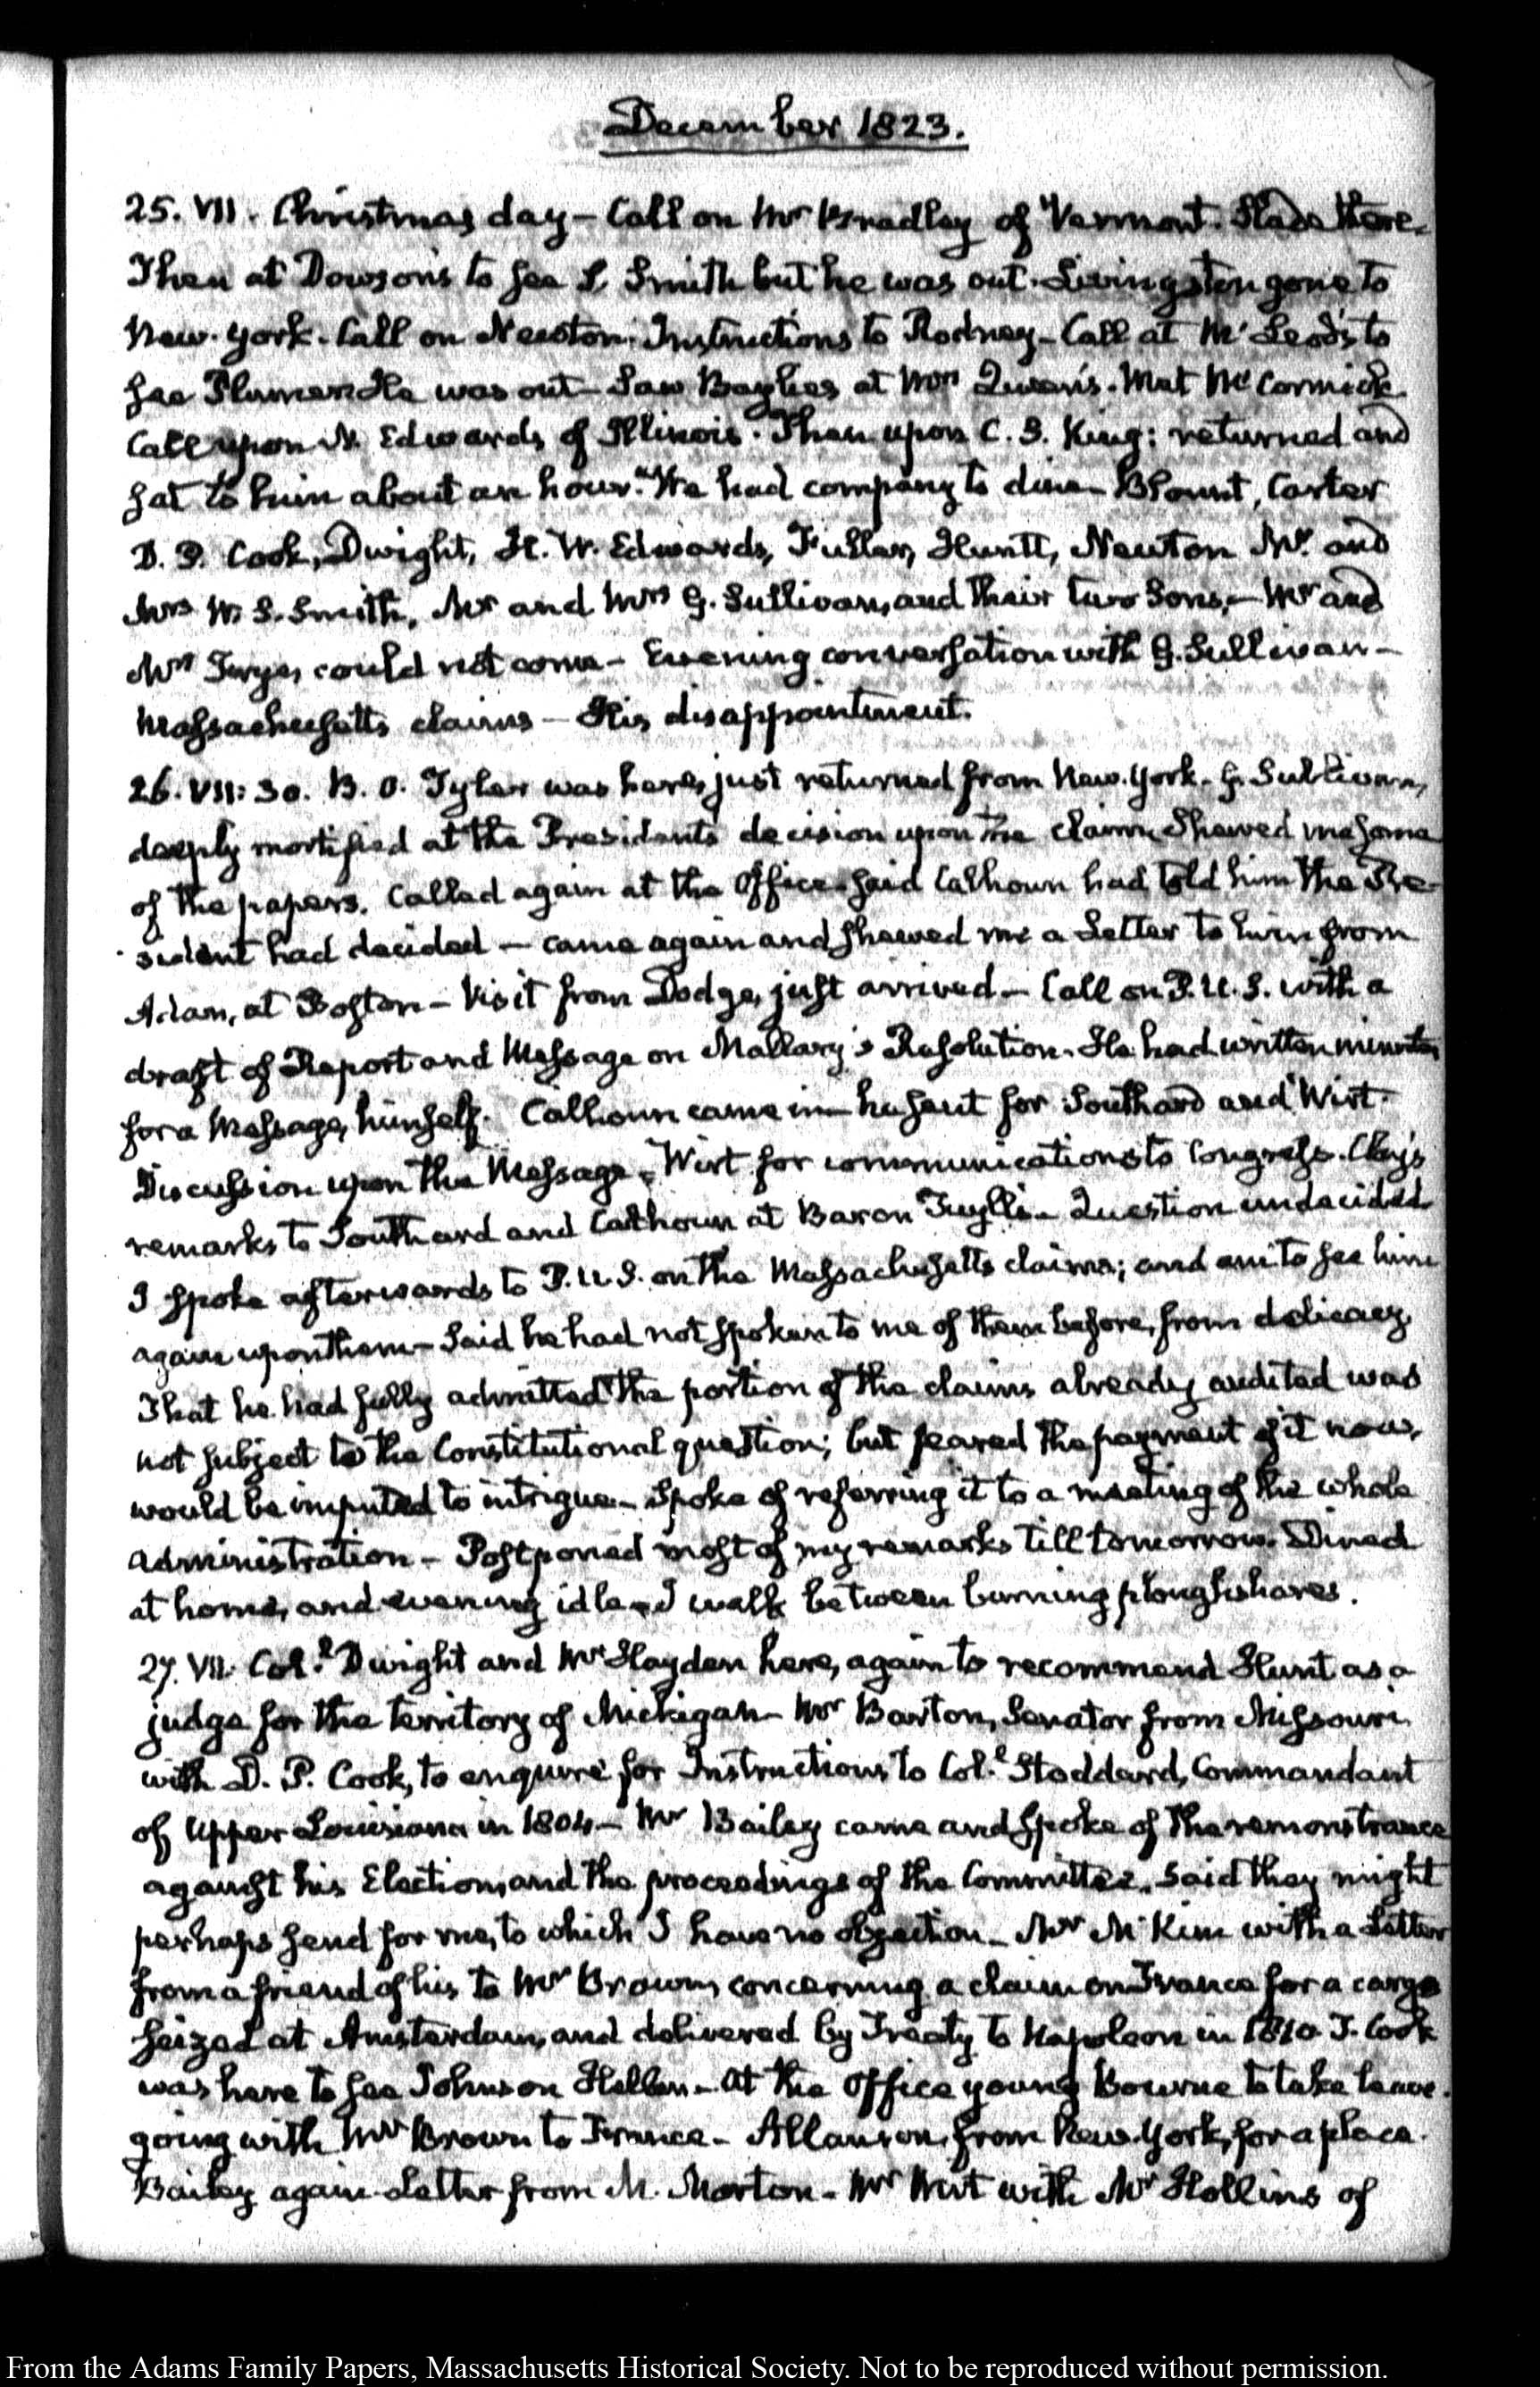 December 1823.
25. VII. Christmas day – Call on Mr Bradley of Vermont. Slade there.
Then at Dowson's to see S. Smith but he was out. Livingston gone to
New-York. Call on Newton. Instructions to Rodney – Call at Mc Leod's to
see Plumer. He was out – Saw Baylies at Mrs Queen's. Met Mc Cormick
Call upon N. Edwards of Illinois. Then upon C. B. King: returned and
sat to him about an hour. We had company to dine – Blount, Carter
D. P. Cook, Dwight, H. W. Edwards, Fuller, Huntt, Newton Mr. and
Mrs W. S. Smith, Mr and Mrs G. Sullivan, and their two Sons, – Mr and
Mrs Frye, could not come – Evening conversation with G. Sullivan –
Massachusetts claims – His disappointment.
26. VII: 30. B. O. Tyler was here, just returned from New-York. G. Sullivan,
deeply mortified at the President's decision upon the claim. Shewed me some
of the papers. Called again at the Office. Said Calhoun had told him the Pre-
sident had decided – came again and shewed me a Letter to him from
Adam, at Boston – Visit from Dodge, just arrived – Call on P. U. S. with a
draft of Report and Message on Mallary's Resolution. He had written minutes
for a Message, himself. Calhoun came in – he sent for Southard and Wirt.
Discussion upon the Message – Wirt for communication to Congress. Clay's
remarks to Southard and Calhoun at Baron Tuyll's – Question undecided
I spoke afterwards to P. U. S. on the Massachusetts claims; and am to see him
again upon them – Said he had not spoken to me of them before, from delicacy.
That he had fully admitted the portion of the claims already audited was
not subject to the Constitutional question; but feared the payment of it now,
would be imputed to intrigue – Spoke of referring it to a meeting of the whole
administration – Postponed most of my remarks till tomorrow. Dined
at home, and evening idle – I walk between burning ploughshares.
27. VII. Col.l Dwight and Mr Hayden here, again to recommend Hunt as a
judge for the territory of Michigan – Mr Barton, Senator from Missouri
with D. P. Cook, to enquire for Instructions to Col.l Stoddard, Commandant
of Upper Louisiana in 1804 – Mr Bailey came and spoke of the remonstrance
against his Election, and the proceedings of the Committee. Said they might
perhaps send for me, to which I have no objection – Mr Mc Kim with a Letter
from a friend of his to Mr Brown, concerning a claim on France for a cargo
seized at Amsterdam, and delivered by Treaty to Napoleon in 1810. T. Cook
was here to see Johnson Hellen – At the Office young Bourne to take leave.
going with Mr Brown to France – Allanson, from New-York, for a place.
Bailey again. Letter from M. Morton – Mr Wirt with Mr Hollins of
From the Adams Family Papers, Massachusetts Historical Society. Not to be reproduced without permission.